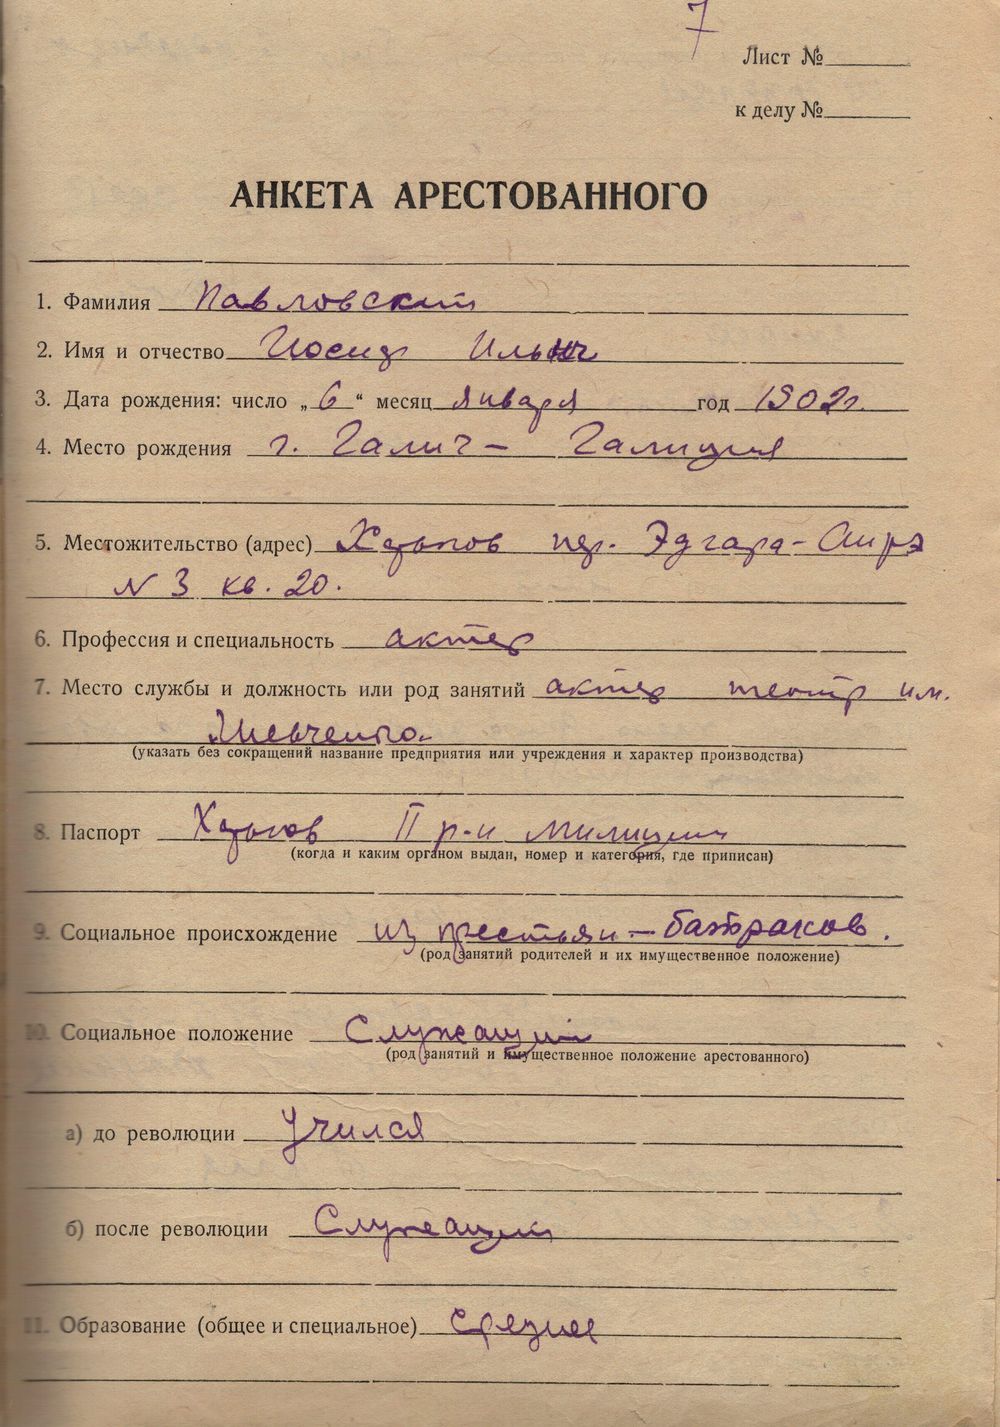 7
Лист №
к делу №
АНКЕТА АРЕСТОВАННОГО
1. Фамилия Павловский
2. Имя и отчество Иосиф Ильич
3. Дата рождения: число „6“ месяц января год 1902г.
4. Место рождения г. Галич - Галиция
5. Местожительство (адрес) Харьков пер. Эдгара-
N 3 кв. 20.
6. Профессия и специальность актер
7. Место службы и должность или род занятий актер театр им.
Шевченко.
(указать без сокращений название предприятия или учреждения и характер производства)
8. Паспорт Харьков II р-н милиции
(когда и каким органом выдан, номер и категория, где приписан)
9. Социальное происхождение из крестьян - батраков.
(род занятий родителей и их имущественное положение)
10. Социальное положение Служащий
(род занятий и имущественное положение арестованного)
а) до революции Учился
б) после революции Служащий
11. Образование (общее и специальное) среднее